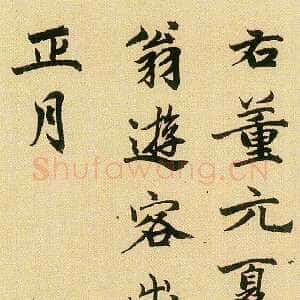 右董元夏
翁遊客出
正月
Shufawang.CN